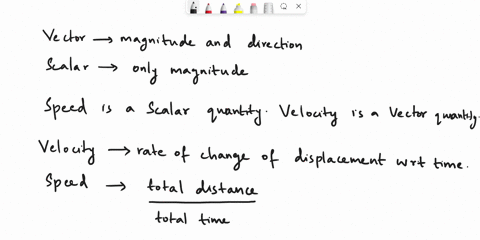 Vector → magnitude and direction
Scalar → only magnitude
Speed is a Scalar quantity. Velocity is a Vector quantity.
Velocity → rate of change of displacement wrt time.
Speed → total distance
total time